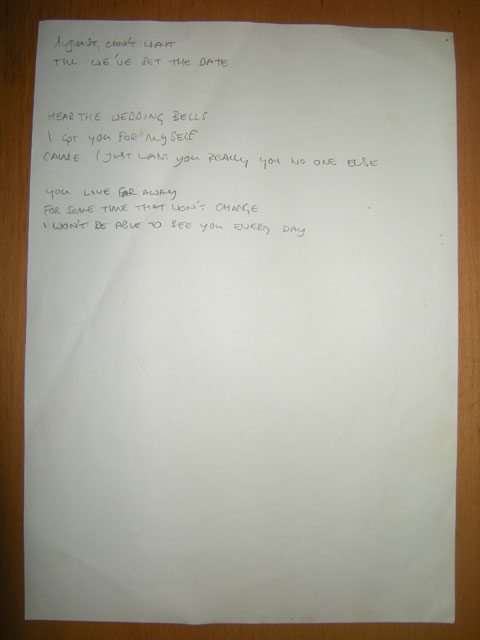 I JUST, CAN'T WAIT
TILL WE'VE SET THE DATE
HEAR THE WEDDING BELLS
I GOT YOU FOR MYSELF
CAUSE I JUST WANT YOU REALLY YOU NO ONE ELSE
YOU LIVE FAR AWAY
FOR SOME TIME THAT WON'T CHANGE
I WON'T BE ABLE TO SEE YOU EVERY DAY